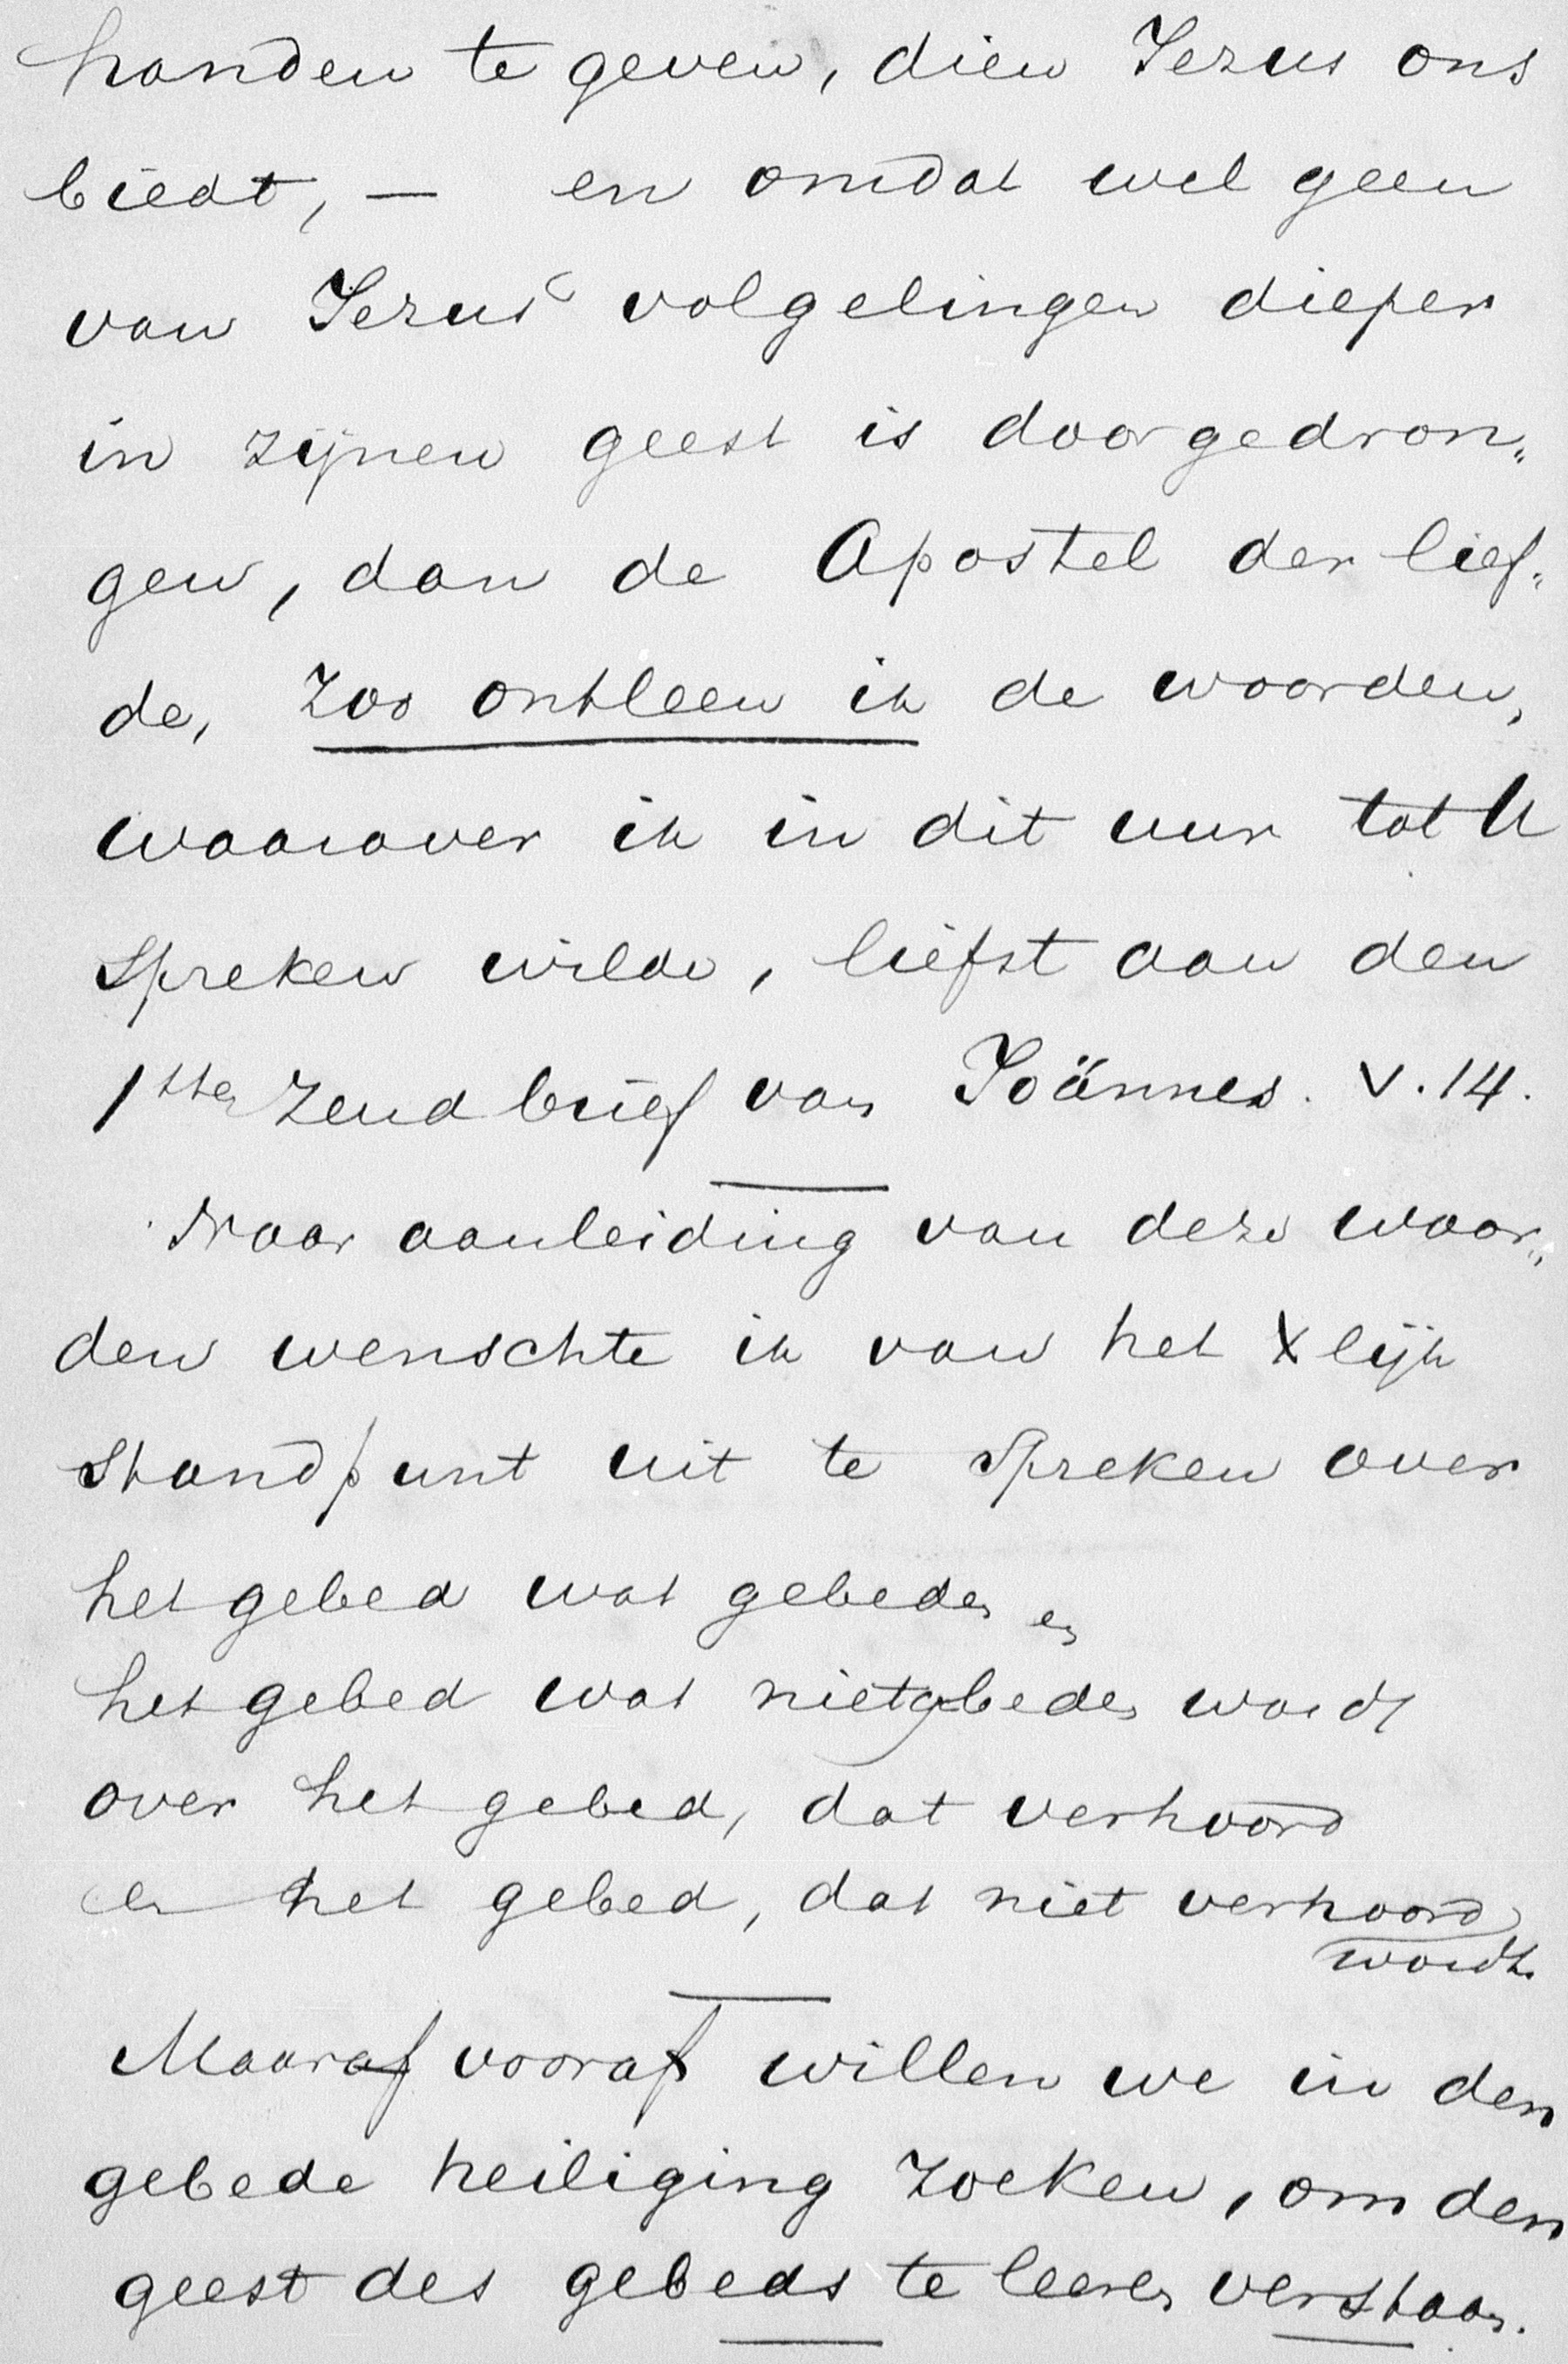 handen te geven, dien Jezus ons
biedt, — en omdat wel geen
van Jezus' volgelingen dieper
in zijnen geest is doorgedron„
gen, dan de Apostel der lief„
de, zoo ontleen ik de woorden,
waarover ik in dit uur tot U
spreken wilde, liefst aan den
1sten Zendbrief van Joännes. V. 14.
Naar aanleiding van deze woor„
den wenschte ik van het Xlijk
standpunt uit te spreken over
het gebed wat gebeden en
het gebed wat niet gebeden wordt
over het gebed, dat verhoord
en het gebed, dat niet verhoord
wordt.
Maar af vooraf willen we in den
gebede heiliging zoeken, om den
geest des gebeds te leeren verstaan.